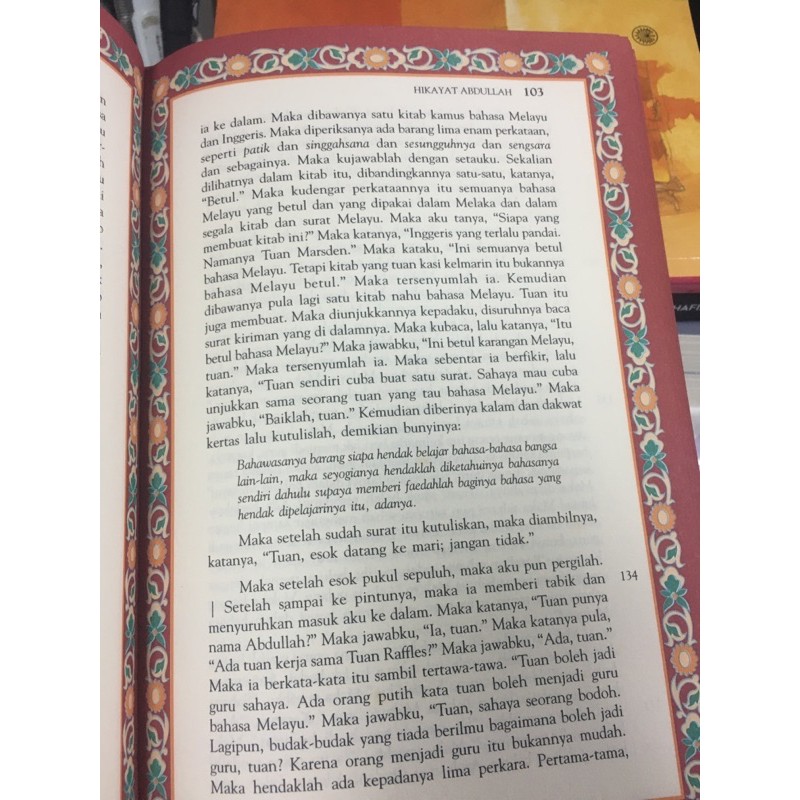 HIKAYAT ABDULLAH 103
ia ke dalam. Maka dibawanya satu kitab kamus bahasa Melayu
dan Inggeris. Maka diperiksanya ada barang lima enam perkataan,
seperti patik dan singgahsana dan sesungguhnya dan sengsara
dan sebagainya. Maka kujawablah dengan setauku. Sekalian
dilihatnya dalam kitab itu, dibandingkannya satu-satu, katanya,
“Betul.” Maka kudengar perkataannya itu semuanya bahasa
Melayu yang betul dan yang dipakai dalam Melaka dan dalam
segala kitab dan surat Melayu. Maka aku tanya, “Siapa yang
membuat kitab ini?” Maka katanya, “Inggeris yang terlalu pandai.
Namanya Tuan Marsden.” Maka kataku, “Ini semuanya betul
bahasa Melayu. Tetapi kitab yang tuan kasi kelmarin itu bukannya
bahasa Melayu betul.” Maka tersenyumlah ia. Kemudian
dibawanya pula lagi satu kitab nahu bahasa Melayu. Tuan itu
juga membuat. Maka diunjukkannya kepadaku, disuruhnya baca
surat kiriman yang di dalamnya. Maka kubaca, lalu katanya, “Itu
betul bahasa Melayu?” Maka jawabku, “Ini betul karangan Melayu,
tuan.” Maka tersenyumlah ia. Maka sebentar ia berfikir, lalu
katanya, “Tuan sendiri cuba buat satu surat. Sahaya mau cuba
unjukkan sama seorang tuan yang tau bahasa Melayu.” Maka
jawabku, “Baiklah, tuan.” Kemudian diberinya kalam dan dakwat
kertas lalu kutulislah, demikian bunyinya:
Bahawasanya barang siapa hendak belajar bahasa-bahasa bangsa
lain-lain, maka seyogianya hendaklah diketahuinya bahasanya
sendiri dahulu supaya memberi faedahlah baginya bahasa yang
hendak dipelajarinya itu, adanya.
Maka setelah sudah surat itu kutuliskan, maka diambilnya,
katanya, “Tuan, esok datang ke mari; jangan tidak.”
Maka setelah esok pukul sepuluh, maka aku pun pergilah.
| Setelah sampai ke pintunya, maka ia memberi tabik dan 134
menyuruhkan masuk aku ke dalam. Maka katanya, “Tuan punya
nama Abdullah?” Maka jawabku, “Ia, tuan.” Maka katanya pula,
“Ada tuan kerja sama Tuan Raffles?” Maka jawabku, “Ada, tuan.”
Maka ia berkata-kata itu sambil tertawa-tawa. “Tuan boleh jadi
guru sahaya. Ada orang putih kata tuan boleh menjadi guru
bahasa Melayu.” Maka jawabku, “Tuan, sahaya seorang bodoh.
Lagipun, budak-budak yang tiada berilmu bagaimana boleh jadi
guru, tuan? Karena orang menjadi guru itu bukannya mudah.
Maka hendaklah ada kepadanya lima perkara. Pertama-tama,